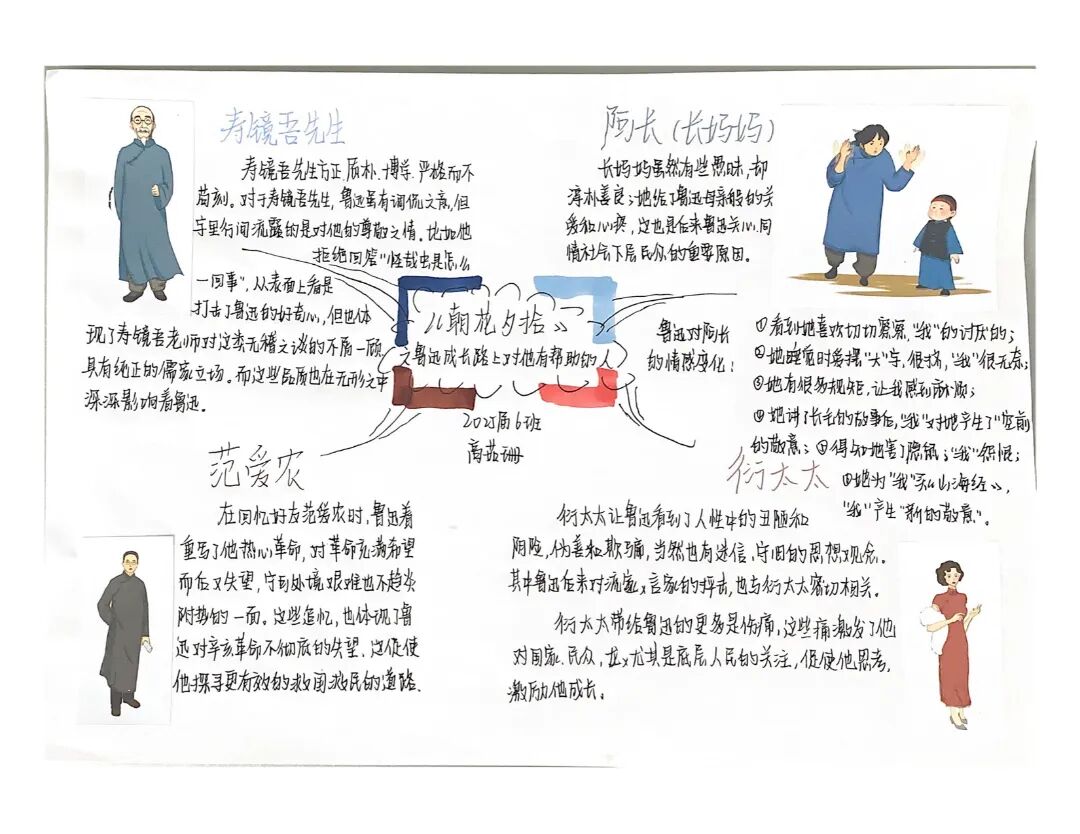 寿镜吾先生
寿镜吾先生方正、质朴、博学、严格而不
苛刻。对于寿镜吾先生,鲁迅虽有调侃之意,但
字里行间流露的是对他的尊敬之情。比如他
拒绝回答“怪哉虫是怎么
一回事”,从表面上看是
打击了鲁迅的好奇心,但也体
现了寿镜吾老师对这类无稽之谈的不屑一顾,
具有纯正的儒家立场。而这些品质也在无形之中
深深影响着鲁迅。
阿长(长妈妈)
长妈妈虽然有些愚昧,却
淳朴善良;她给了鲁迅母亲般的关
爱和心疼,这也是后来鲁迅关心、同
情社会下层民众的重要原因。
鲁迅对阿长
的情感变化:
①看到她喜欢切切察察,“我”的讨厌的;
②她睡觉时爱摆“大”字,很挤,“我”很无奈;
③她有很多规矩,让我感到麻烦;
④她讲了长毛的故事后,“我”对她产生了“空前
的敬意;⑤得知她害了隐鼠,“我”怨恨;
⑥她为“我”买《山海经》,
“我”产生“新的敬意”。
《朝花夕拾》
之鲁迅成长路上对他有帮助的人
2025届6班
范爱农
在回忆好友范爱农时,鲁迅着
重写了他热心革命,对革命充满希望
而后又失望,守到处境艰难也不趋炎
附势的一面。这些追忆,也体现了鲁
迅对辛亥革命不彻底的失望,这促使
他探寻更有效的救国救民的道路.
衍太太
衍太太让鲁迅看到了人性中的丑陋和
阴险,伪善和欺骗,当然也有迷信、守旧的思想观念。
其中鲁迅后来对流家言家的抨击,也与衍太太密切相关。
衍太太带给鲁迅的更多是伤痛,这些痛激发了他
对国家、民众,尤其是底层人民的关注,促使他思考,
激励他成长。